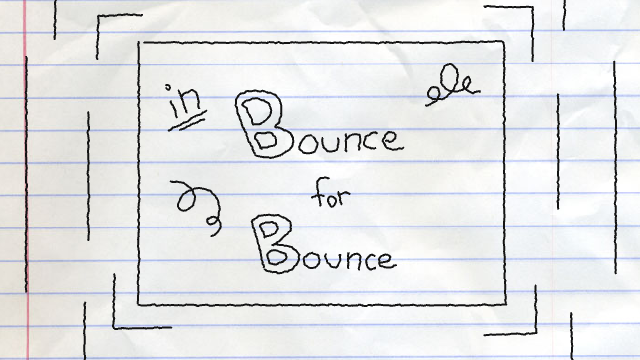 in Bounce
for
Bounce